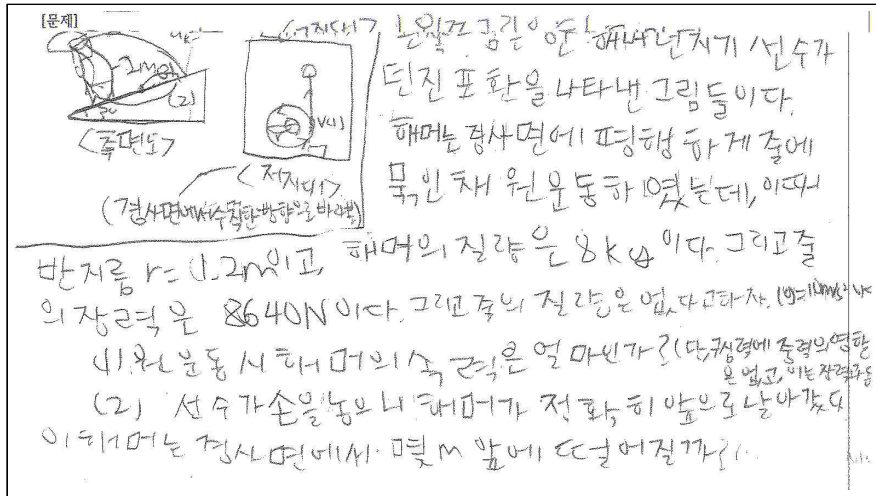 [문제]
<고지대>
(2)
<측면도>
V(1)
<저지대>
(경사면에서 수직한 방향으로 바라봄)
는 왼쪽 그림은 해머던지기 선수가
던진 포환을 나타낸 그림들이다.
해머는 경사면에 평행하게 줄에
묶인채 원운동하였는데, 이때
반지름 r=1.2m이고, 해머의 질량은 8kg이다. 그리고 줄
의 장력은 8640N이다. 그리고 줄의 질량은 없다고 하자.
(1) 원운동시 해머의 속력은 얼마인가? (단, 구심력에 중력의 영향
은 없고, 이는 장력
(2) 선수가 손을 놓으니 해머가 정확히 앞으로 날아갔다
이 해머는 경사면에서 몇 m 앞에 떨어질까?